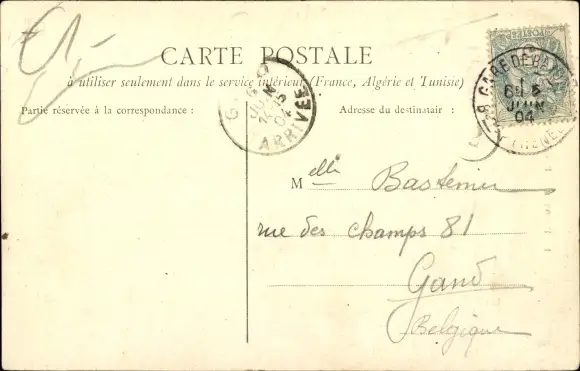 CARTE POSTALE
à utiliser seulement dans le service intérieur (France, Algérie et Tunisie)
Partie réservée à la correspondance :
Adresse du destinataire :
ARRIVÉE
GARE DE
6E 5
JUIN
04
Melle Bastenier
rue des champs 81
Gand
Belgique